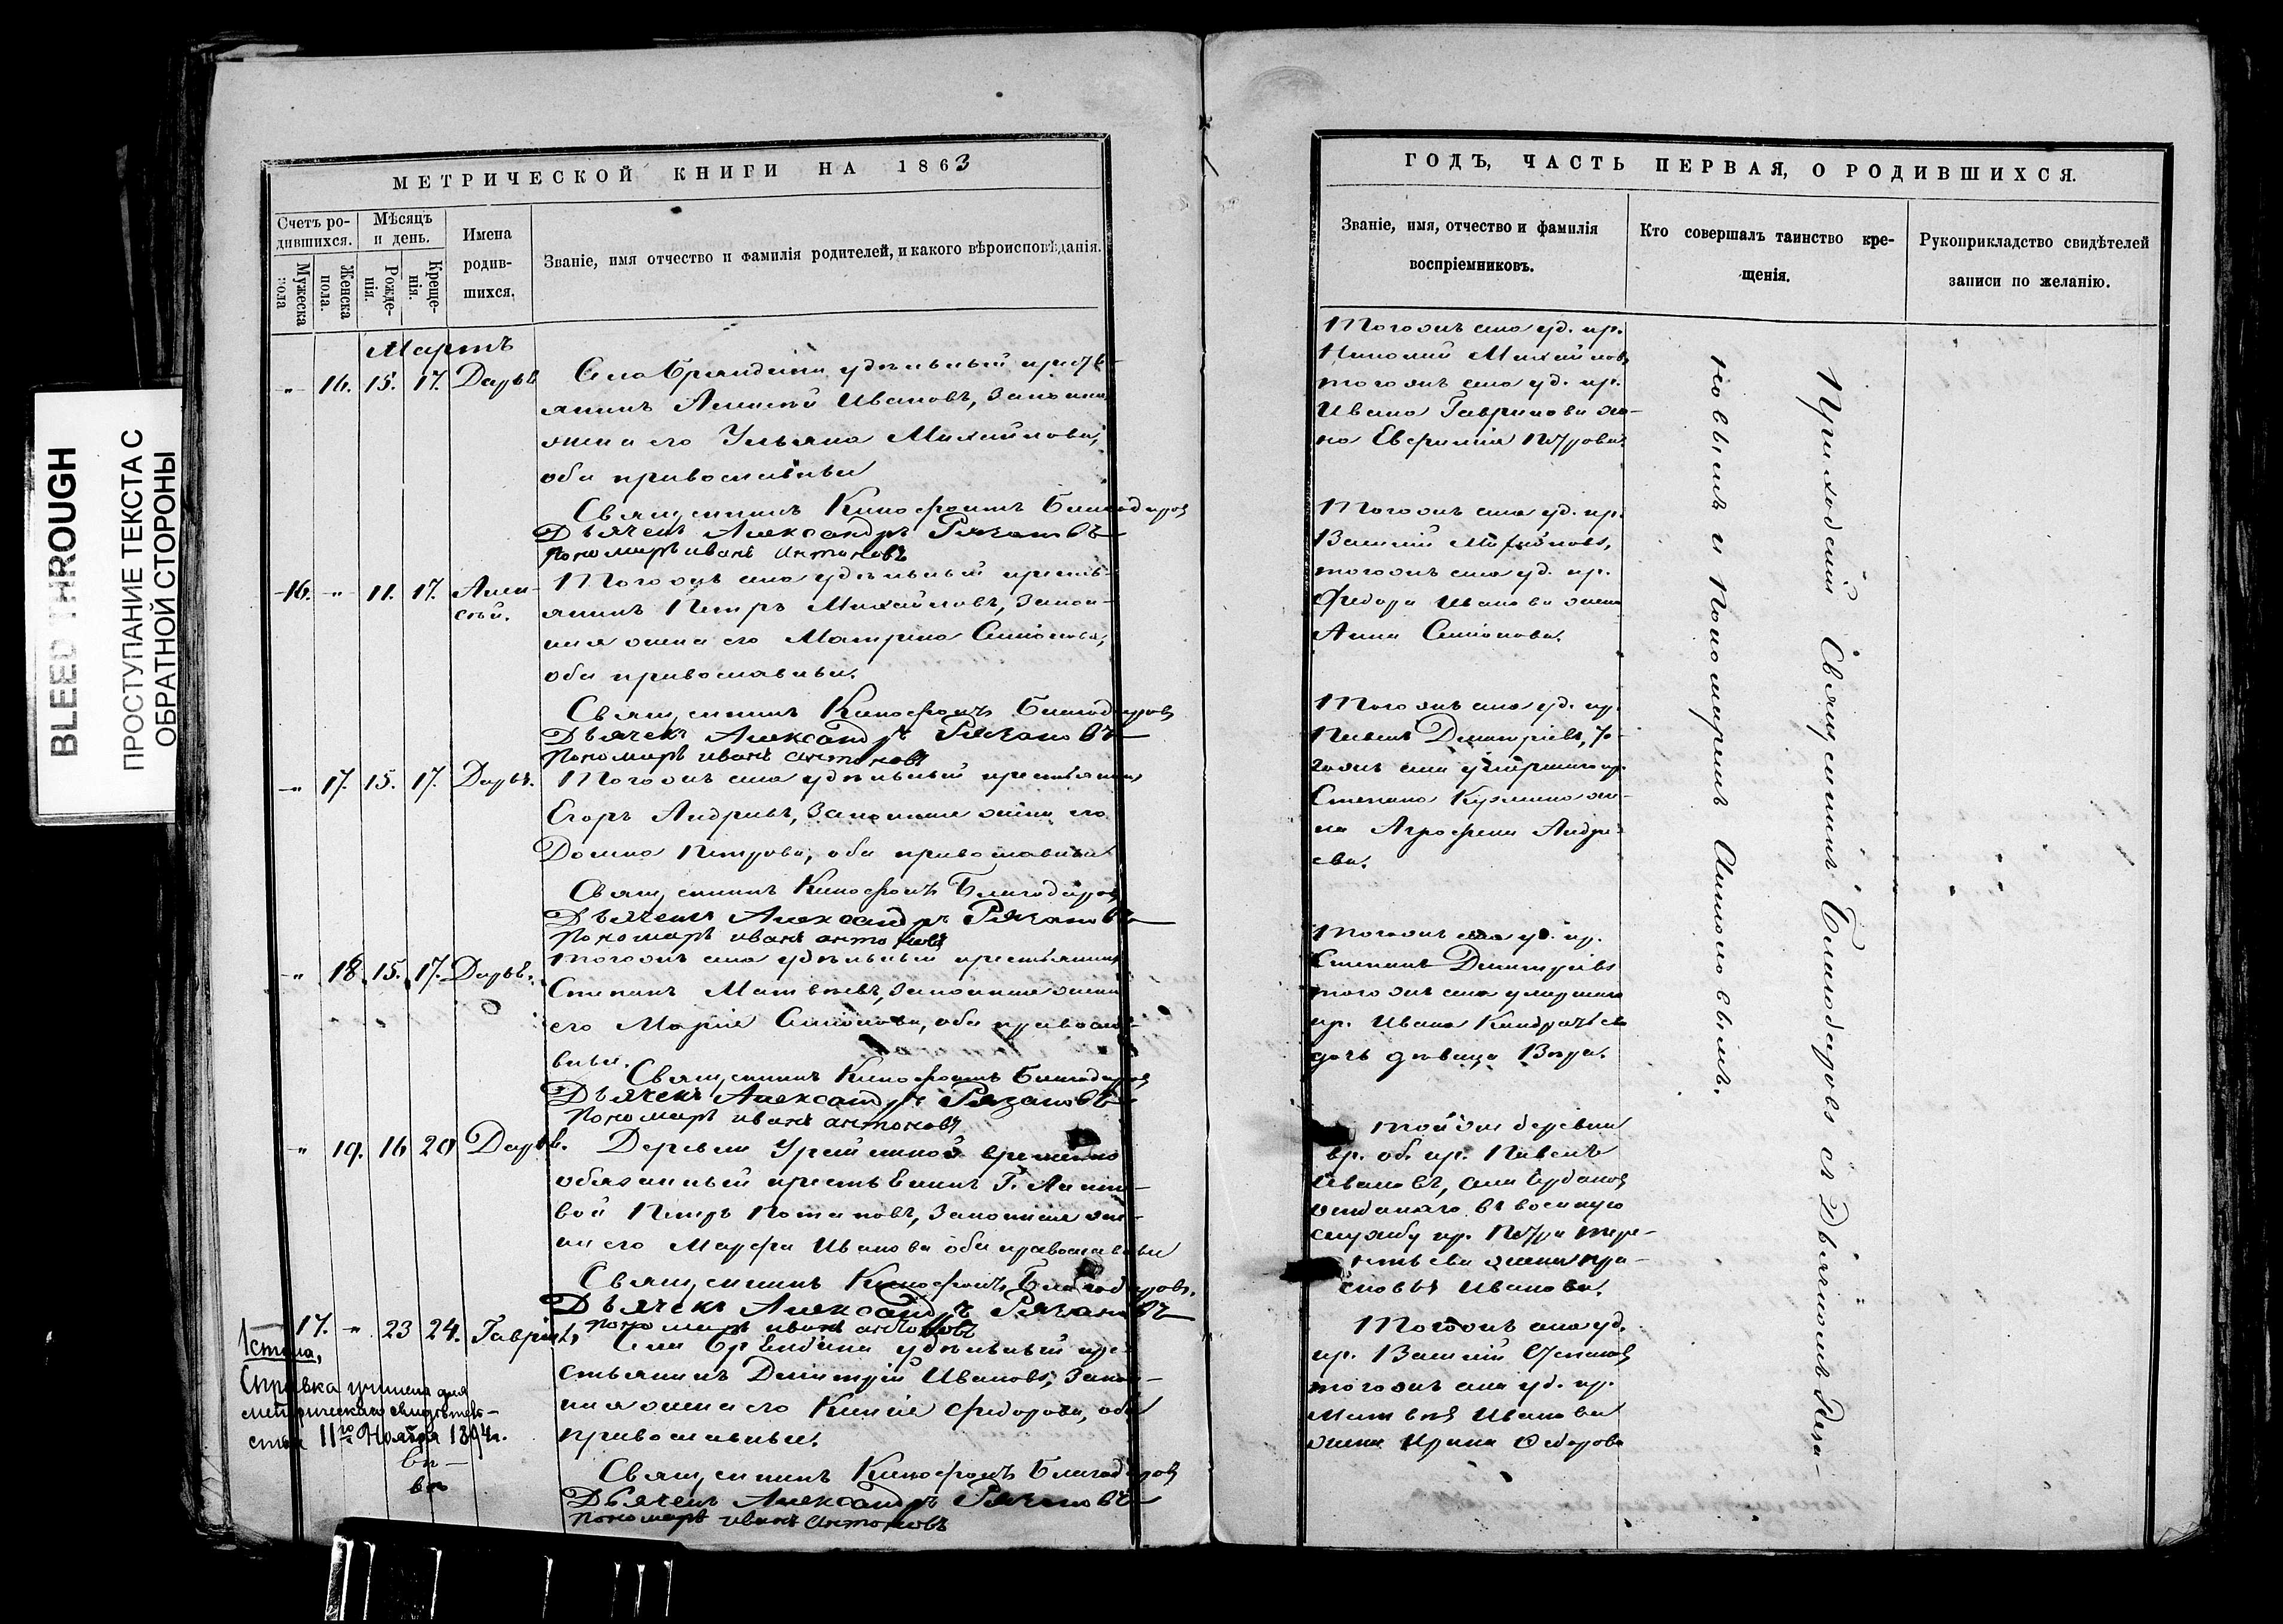 BLEED THROUGH
ПРОСТУПАНИЕ ТЕКСТА С
ОБРАТНОЙ СТОРОНЫ
МЕТРИЧЕСКОЙ КНИГИ НА 1863
Счетъ ро-
дившихся.
Мужеска
пола
Женска
пола.
Мѣсяцъ
и день.
Рожде-
нія.
Креще-
нія.
Имена
родив-
шихся.
Званіе, имя отчество и фамилія родителей, и какого вѣроисповѣданія.
Мартъ
" 16. 15. 17. Дарья
Села удѣльный кресть-
янинъ Алексѣй Ивановъ, законная
жена его Ульяна Михайлова,
оба православные
Священникъ Ксенофонтъ Благодаровъ
Дьячекъ Александръ Рязановъ
пономарь иванъ антоновъ
16. " 11. 17. Алек-
сѣй.
Тогожъ села удѣльный кресть-
янинъ Петръ Михайловъ, закон-
ная жена его Матрона Симіонова,
оба православные.
Священникъ Ксенофонтъ Благодаровъ
Дьячекъ Александръ Рязановъ
пономарь иванъ антоновъ
" 17. 15. 17. Дарья.
Тогожъ села удѣльный крестьянинъ
Егоръ Андреевъ, законная жена его
Домна Петрова, оба православные
Священникъ Ксенофонтъ Благодаровъ
Дьячекъ Александръ Рязановъ
пономарь иванъ антоновъ
" 18. 15. 17. Дарья.
тогожъ села удѣльный крестьянинъ
Степанъ Матвѣевъ, законная жена
его Марія Симіонова, оба правосла-
вные.
Священникъ Ксенофонтъ Благодаровъ
Дьячекъ Александръ Рязановъ
пономарь иванъ антоновъ
" 19. 16 20 Дарья.
Деревни временно
обязанный крестьянинъ Г.
Петръ Потаповъ, законная же-
на его Марфа Иванова оба православные
Священникъ Ксенофонтъ Благодаровъ.
Дьячекъ Александръ Рязановъ
пономарь иванъ антоновъ
17. " 23 24. Гавріилъ
Села удѣльный кре-
стьянинъ Димитрій Ивановъ, закон-
ная жена его Ксенія Федорова, оба
православные.
Священникъ Ксенофонтъ Благодаровъ
Дьячекъ Александръ Рязановъ
пономарь иванъ антоновъ
1 стола,
Справка учинена для
метрическаго свидѣтель-
ства 11го Ноября 1894г.
ГОДЪ, ЧАСТЬ ПЕРВАЯ, О РОДИВШИХСЯ.
Званіе, имя, отчество и фамилія
воспріемниковъ.
Кто совершалъ таинство кре-
щенія.
Рукоприкладство свидѣтелей
записи по желанію.
Тогожъ села уд. кр.
Николай Михайловъ,
тогожъ села уд. кр.
Ивана Гаврилова же-
на Евфимія Петрова.
Тогожъ села уд. кр.
Василій
тогожъ села уд. кр.
Федора Иванова жена
Анна Симіонова.
Тогожъ села уд. кр.
Павелъ Димитріевъ, то-
гожъ села умершаго кр.
Степана Кузмина же-
на Агрофена Андре-
ева.
Тогожъ села уд. кр.
Степанъ Димитріевъ
тогожъ села умершаго
кр. Ивана Кондратьева
дочь дѣвица Вѣра.
Тойже деревни
вр. об. кр. Павелъ
Ивановъ, села
отданнаго въ военную
службу кр. Петра
жена
Иванова.
Тогожъ села уд.
кр. Василій
тогожъ села уд. кр.
Матвѣя Иванова
жена Ирина Федорова
Приходскій Священникъ Благодаровъ съ Дьячкомъ Ряза-
новымъ и Пономаремъ Антоновымъ.